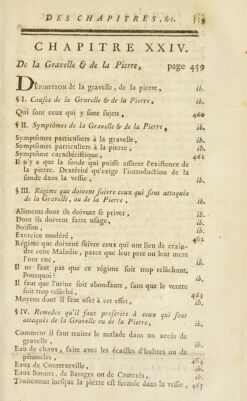 DES CHAPITRES, &c.
CHAPITRE XXIV.
De la Gravelle & de la Pierre, page 459
DÉfinition de la gravelle, de la pierre, ib.
§ I. Causes de la Gravelle & de la Pierre, ib.
Qui sont ceux qui y sont sujets, 460
§ II. Symptômes de la Gravelle & de la Pierre, ib.
Symptômes particuliers à la gravelle, ib.
Symptômes particuliers à la pierre, ib.
Symptôme caractéristique, 461
Il n'y a que la sonde qui puisse assurer l'existence de
la pierre. Dextérité qu'exige l'introduction de la
sonde dans la vessie, ib.
§ III. Régime que doivent suivre ceux qui sont attaqués
de la Gravelle, ou de la Pierre, ib.
Aliments dont ils doivent se priver, ib.
Dont ils doivent faire usage, ib.
Boisson, ib.
Exercice modéré, 462
Régime que doivent suivre ceux qui ont lieu de crain-
dre cette Maladie, parce que leur pere ou leur mere
l'ont eue, ib.
Il ne faut pas que ce régime soit trop relâchant.
Pourquoi? ib.
Il faut que l'urine soit abondante, sans que le ventre
soit trop relâché, 463
Moyens dont il faut user à cet effet, ib.
§ IV. Remedes qu'il faut prescrire à ceux qui sont
attaqués de la Gravelle ou de la Pierre, ib.
Comment il faut traiter le malade dans un accès de
gravelle, ib.
Eau de chaux, faite avec les écailles d'huîtres ou de
pétoncles, 464
Eaux de Contrexeville, ib.
Eaux Bonnes, de Bareges ou de Cauterès, ib.
Traitement lorsque la pierre est formée dans la vessie, 465